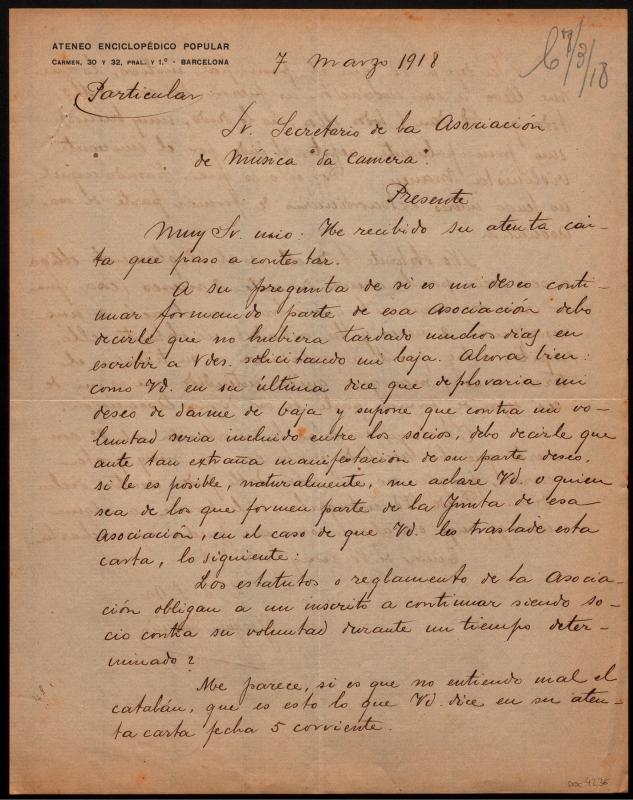 ATENEO ENCICLOPÉDICO POPULAR
CARMEN, 30 Y 32, PRAL. Y 1.º - BARCELONA
7 Marzo 1918
C 7/3/18
Particular
Sr. Secretario de la Asociación
de Música "da Camera".
Presente
Muy Sr. mio: He recibido su atenta car-
ta que paso a contestar.
A su pregunta de si es mi deseo conti-
nuar formando parte de esa Asociación debo
decirle que no hubiera tardado muchos dias en
escribir a Vdes. solicitando mi baja. Ahora bien:
como Vd. en su última dice que deploraria mi
deseo de darme de baja y supone que contra mi vo-
luntad seria incluido entre los socios, debo decirle que
ante tan extraña manifestación de su parte deseo,
si le es posible, naturalmente, me aclare Vd. o quien
sea de los que formen parte de la Junta de esa
Asociación, en el caso de que Vd. les traslade esta
carta, lo siguiente:
Los estatutos o reglamento de la Asocia-
ción obligan a un inscrito a continuar siendo so-
cio contra su voluntad durante un tiempo deter-
minado?
Me parece, si es que no entiendo mal el
catalán, que es esto lo que Vd. dice en su aten-
ta carta fecha 5 corriente.
DOC 4236